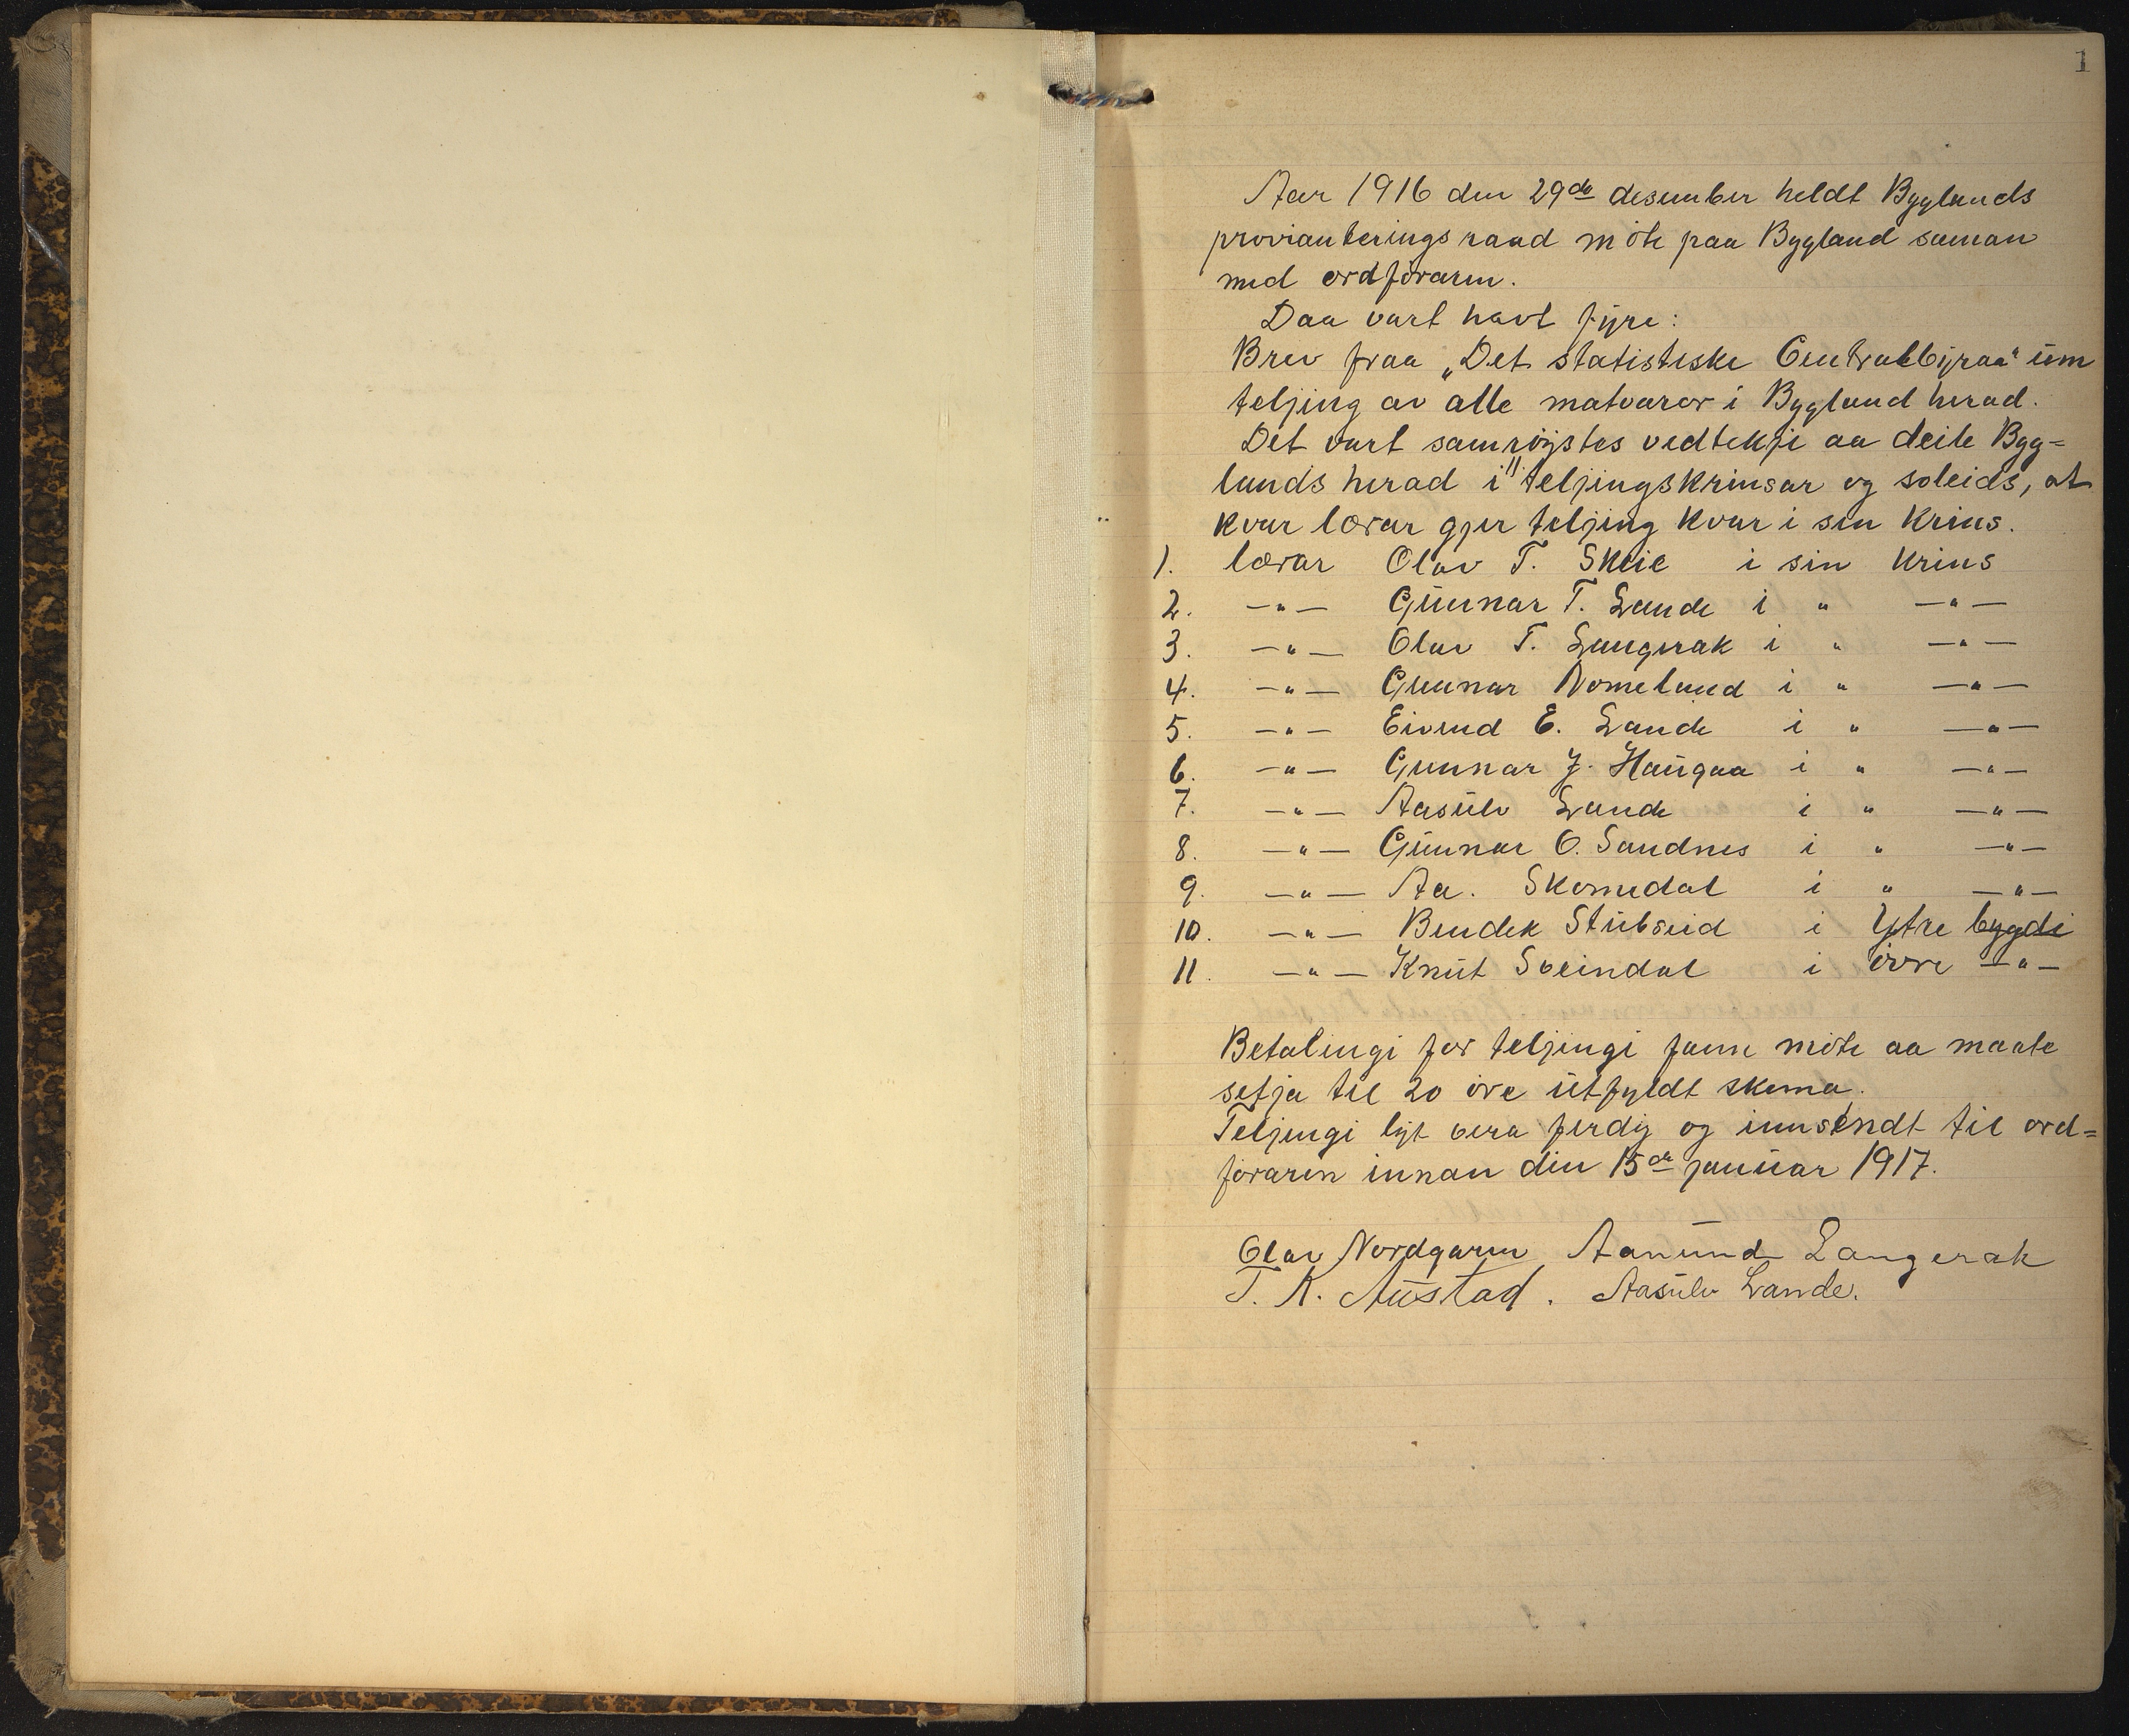 1
Aar 1916 den 29de desember heldt Byglands
provianteringsraad möte paa Bygland saman
med ordföraren.
Daa vart havt fyre:
Brev fraa „Det statistiske Centralbyraa" um
teljing av alle matvaror i Bygland herad.
Det vart samröystes vedtekje aa deile Byg=
lands herad i 11 teljingskrinsar og soleids, at
kvar lærar gjer teljing kvar i sin krins.
1. lærar Olav T. Skeie i sin krins
2. —"— Gunnar T. Lande i " —"—
3. —"— Olav T. Langerak i " —"—
4. —"— Gunnar Nomeland i " —"—
5. —"— Eivend E. Lande i " —"—
6. —"— Gunnar J. Haugaa i " —"—
7. —"— Aasulv Lande i " —"—
8. —"— Gunnar O. Sandnes i " —"—
9. —"— Aa. Skomedal i " —"—
10. —"— Bendek Stubseid i Ytre bygdi
11. —"— Knut Sveindal i övre —"—
Betalingi for teljingi fann möte aa maate
setja til 20 öre utfyldt skema.
Teljingi lyt vera ferdig og innsendt til ord=
föraren innan den 15de januar 1917.
Olav Nordgaren Aanund Langerak
T. K. Austad. Aasulv Lande.